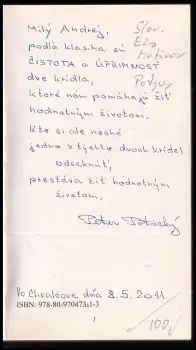 Milý Andrej,
podľa klasika sú
ČISTOTA a ÚPRIMNOSŤ
dve krídla,
ktoré nám pomáhajú žiť
hodnotným životom.
Kto si ale nechá
jedno z týchto dvoch krídel
odseknúť,
prestáva žiť hodnotným
životom.
Peter Potocký
Po Chválove dňa 8.5.2011
ISBN: 978-80-970473-1-3
1
100,-